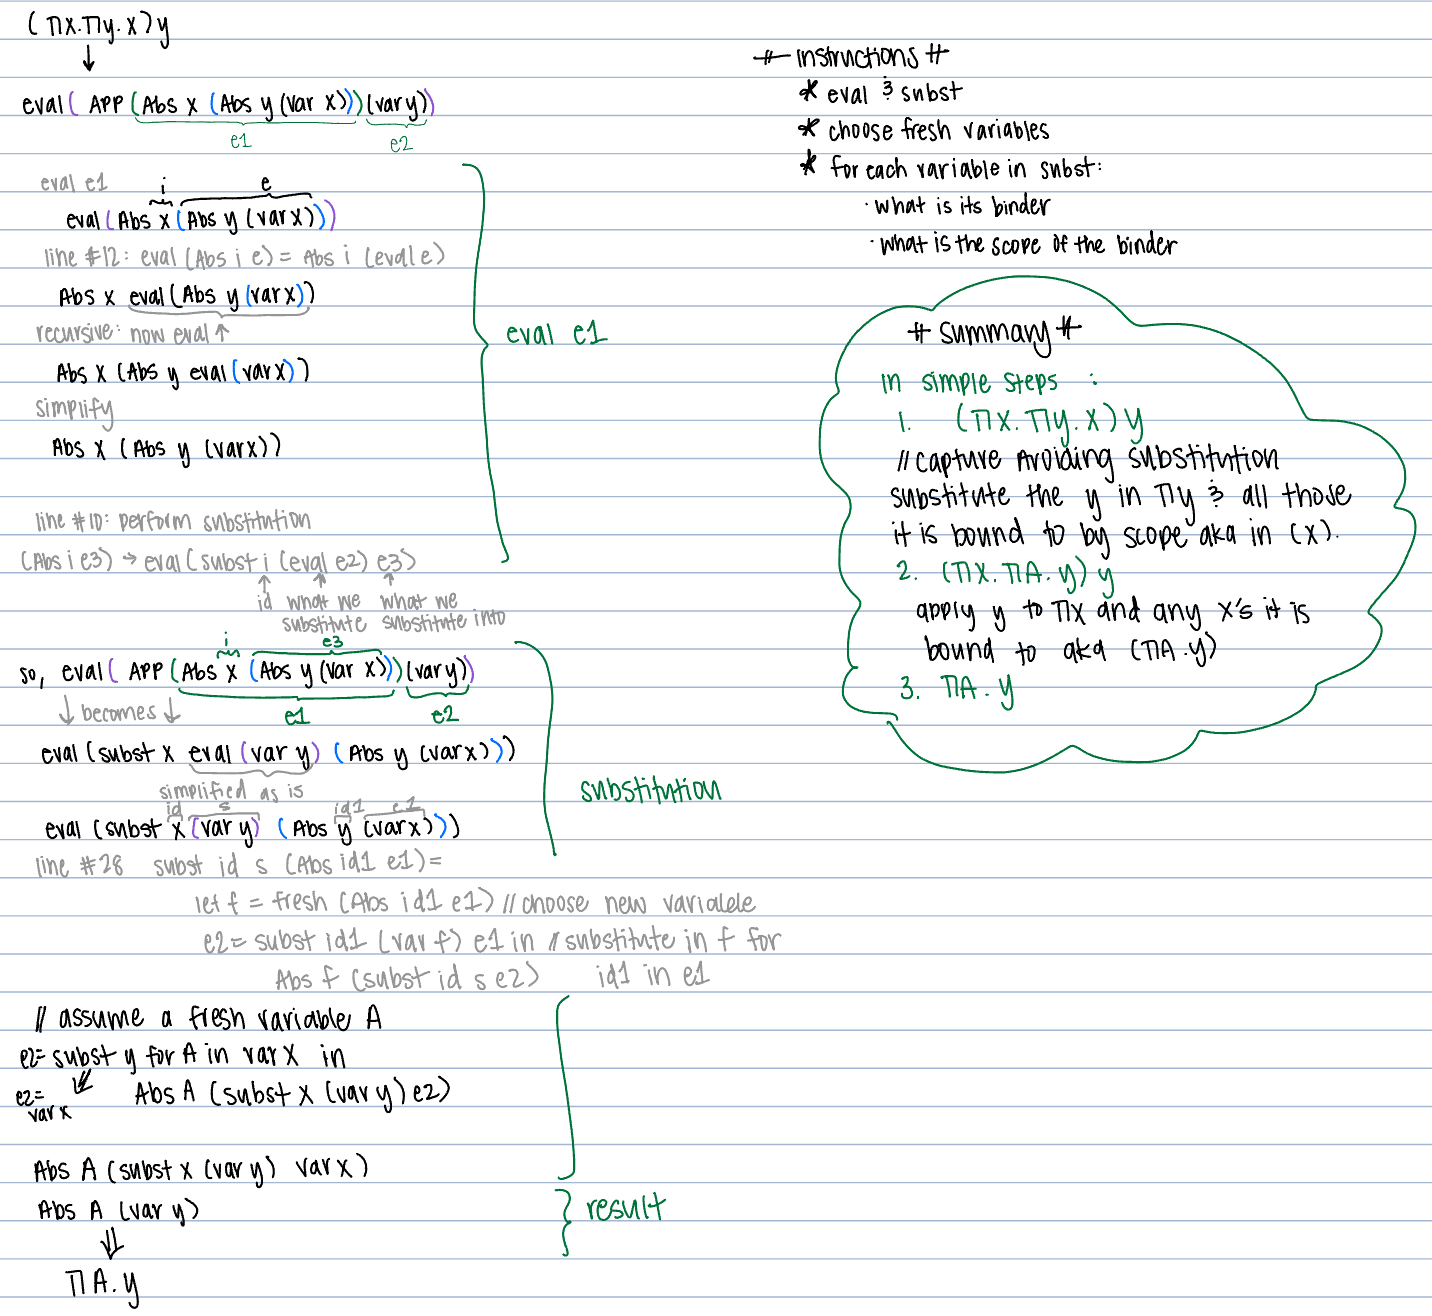 (πx.πy.x)y
↓
eval(APP(Abs x (Abs y (var x)))(var y))
e1 e2
eval e1
i e
eval(Abs x (Abs y (var x)))
line #12: eval (Abs i e) = Abs i (eval e)
Abs x eval(Abs y (var x))
recursive: now eval ↑
Abs x (Abs y eval(var x))
simplify
Abs x (Abs y (var x))
eval e1
line #10: perform substitution
(Abs i e3) → eval(subst i (eval e2) e3)
id what we what we
substitute substitute into
i e3
so, eval(APP(Abs x (Abs y (var x)))(var y))
e1 e2
↓ becomes ↓
eval(subst x eval(var y) (Abs y (var x)))
simplified as is
id s id1 e1
eval (subst x (var y) (Abs y (var x)))
substitution
line #28 subst id s (Abs id1 e1)=
let f = fresh (Abs id1 e1) // choose new variable
e2= subst id1 (var f) e1 in // substitute in f for
Abs f (subst id s e2) id1 in e1
// assume a fresh variable A
e2= subst y for A in var x in
e2= var x
Abs A (subst x (var y) e2)
Abs A (subst x (var y) var x)
Abs A (var y)
result
⇓
πA.y
# instructions #
* eval & subst
* choose fresh variables
* for each variable in subst:
· what is its binder
· what is the scope of the binder
# summary #
in simple steps :
1. (πx.πy.x)y
// capture Avoiding substitution
substitute the y in πy & all those
it is bound to by scope aka in (x).
2. (πx.πA.y)y
apply y to πx and any x's it is
bound to aka (πA.y)
3. πA.y